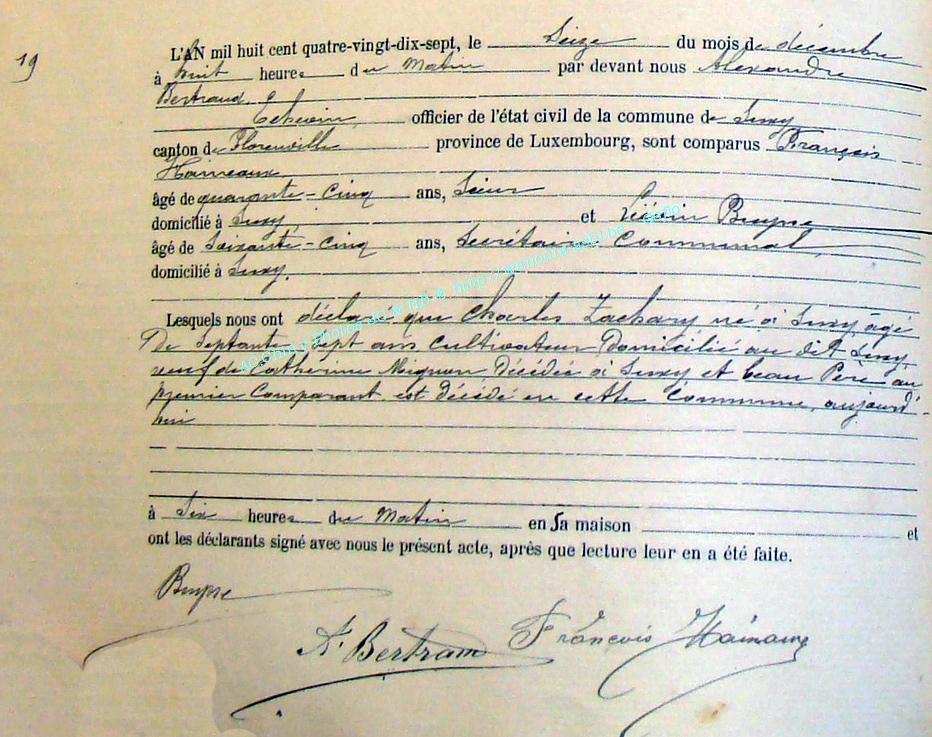 19
L'AN mil huit cent quatre-vingt-dix-sept, le Seize du mois de décembre
à huit heures du Matin par devant nous Alexandre
Bertrand
Echevin, officier de l'état civil de la commune de Suxy
canton de Florenville province de Luxembourg, sont comparus François
Hainaux
âgé de quarante-cinq ans,
domicilié à Suxy, et
âgé de Soixante-cinq ans, Secrétaire Communal,
domicilié à Suxy.
Lesquels nous ont déclaré que Charles Zachary né à Suxy âgé
De Septante Sept ans Cultivateur Domicilié au dit Suxy,
veuf de Catherine Mignon Décédée à Suxy et beau Père au
premier Comparant est Décédé en cette Commune, aujourd'-
hui
à Six heures du Matin en sa maison et
ont les déclarants signé avec nous le présent acte, après que lecture leur en a été faite.
A. Bertrand François Hainaux